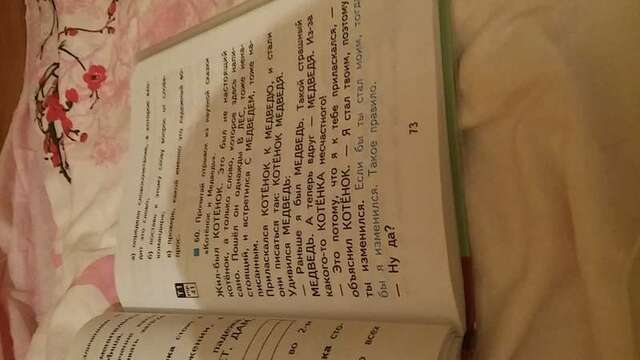 а) определи словосочетание, в которое вхо-
дит это слово;
б) поставь к этому слову вопрос от слова-
командира;
в) проверь, какой именно это падежный во-
прос.
60. Прочитай отрывок из научной сказки
«Котёнок и Медведь».
Жил-был КОТЁНОК. Это был не настоящий
котёнок, а только слово, которое здесь напи-
сано. Пошёл он однажды в ЛЕС, тоже нена-
стоящий, и встретился С МЕДВЕДЕМ, тоже на-
писанным.
Приласкался КОТЁНОК К МЕДВЕДЮ, и стали
они писаться так: КОТЁНОК МЕДВЕДЯ.
Удивился МЕДВЕДЬ:
— Раньше я был МЕДВЕДЬ. Такой страшный
МЕДВЕДЬ. А теперь вдруг — МЕДВЕДЯ. Из-за
какого-то КОТЁНКА несчастного!
— Это потому, что я к тебе приласкался, —
объяснил КОТЁНОК. — Я стал твоим, поэтому
ты изменился. Если бы ты стал моим, тогда
бы я изменился. Такое правило.
— Ну да?
73